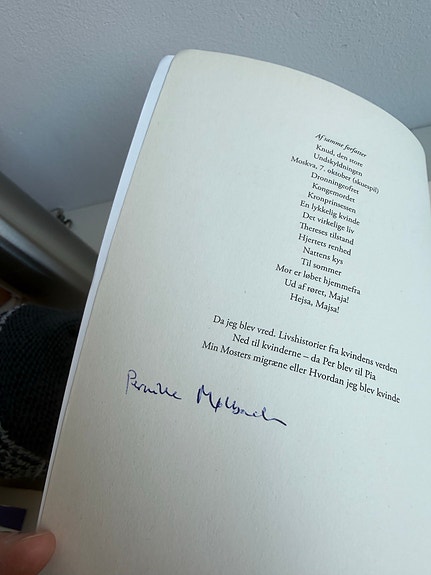 Af samme forfatter
Knud, den store
Undskyldningen
Moskva, 7. oktober (skuespil)
Dronningeofret
Kongemordet
Kronprinsessen
En lykkelig kvinde
Det virkelige liv
Thereses tilstand
Hjertets renhed
Nattens kys
Til sommer
Mor er løbet hjemmefra
Ud af røret, Maja!
Hejsa, Majsa!
Da jeg blev vred. Livshistorier fra kvindens verden
Ned til kvinderne – da Per blev til Pia
Min Mosters migræne eller Hvordan jeg blev kvinde
Pernille